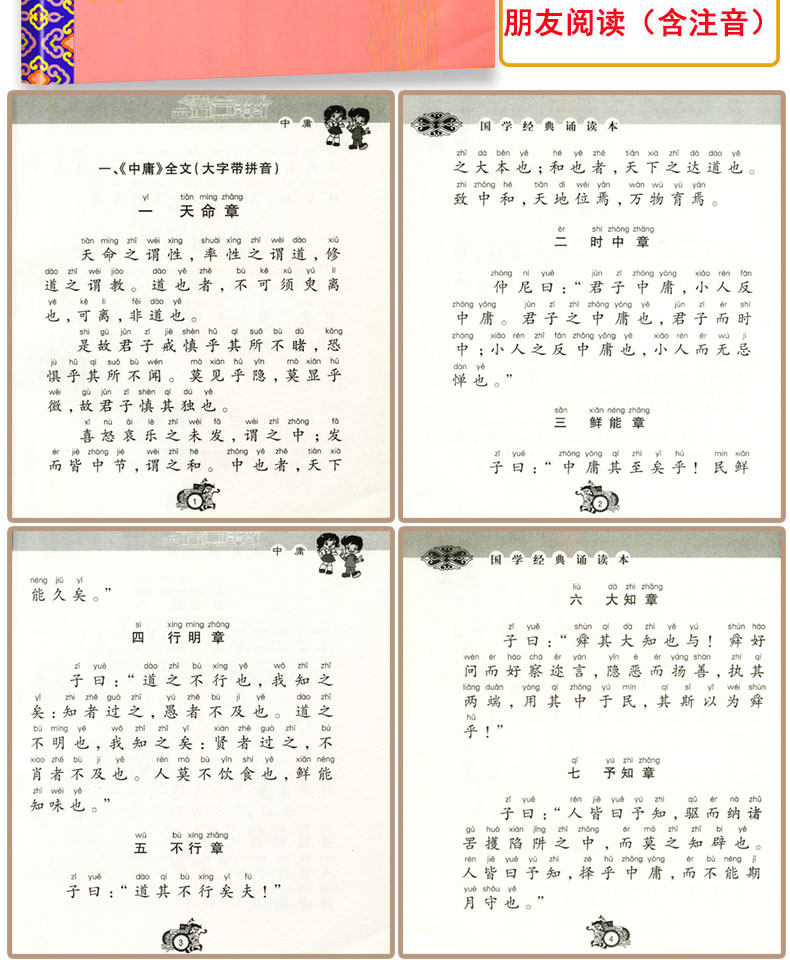 朋友阅读（含注音）
中庸
一、《中庸》全文(大字带拼音)
yī tiān mìng zhāng
一 天命章
tiān mìng zhī wèi xìng shuài xìng zhī wèi dào xiū
天命之谓性,率性之谓道,修
dào zhī wèi jiào dào yě zhě bù kě xū yú lí
道之谓教。道也者,不可须臾离
yě kě lí fēi dào yě
也,可离,非道也。
shì gù jūn zǐ jiè shèn hū qí suǒ bù dǔ kǒng
是故君子戒慎乎其所不睹,恐
jù hū qí suǒ bù wén mò xiàn hū yǐn mò xiǎn hū
惧乎其所不闻。莫见乎隐,莫显乎
wēi gù jūn zǐ shèn qí dú yě
微,故君子慎其独也。
xǐ nù āi lè zhī wèi fā wèi zhī zhōng fā
喜怒哀乐之未发,谓之中;发
ér jiē zhòng jié wèi zhī hé zhōng yě zhě tiān xià
而皆中节,谓之和。中也者,天下
1
国学经典诵读本
zhī dà běn yě hé yě zhě tiān xià zhī dá dào yě
之大本也;和也者,天下之达道也。
zhì zhōng hé tiān dì wèi yān wàn wù yù yān
致中和,天地位焉,万物育焉。
èr shí zhōng zhāng
二 时中章
zhòng ní yuē jūn zǐ zhōng yōng xiǎo rén fǎn
仲尼曰:“君子中庸,小人反
zhōng yōng jūn zǐ zhī zhōng yōng yě jūn zǐ ér shí
中庸。君子之中庸也,君子而时
zhōng xiǎo rén zhī fǎn zhōng yōng yě xiǎo rén ér wú jì
中;小人之反中庸也,小人而无忌
dàn yě
惮也。”
sān xiǎn néng zhāng
三 鲜能章
zǐ yuē zhōng yōng qí zhì yǐ hū mín xiǎn
子曰:“中庸其至矣乎!民鲜
2
中庸
néng jiǔ yǐ
能久矣。”
sì xíng míng zhāng
四 行明章
zǐ yuē dào zhī bù xíng yě wǒ zhī zhī
子曰:“道之不行也,我知之
yǐ zhì zhě guò zhī yú zhě bù jí yě dào zhī
矣:知者过之,愚者不及也。道之
bù míng yě wǒ zhī zhī yǐ xián zhě guò zhī bù
不明也,我知之矣:贤者过之,不
xiào zhě bù jí yě rén mò bù yǐn shí yě xiǎn néng
肖者不及也。人莫不饮食也,鲜能
zhī wèi yě
知味也。”
wǔ bù xíng zhāng
五 不行章
zǐ yuē dào qí bù xíng yǐ fú
子曰:“道其不行矣夫!”
3
国学经典诵读本
liù dà zhì zhāng
六 大知章
zǐ yuē shùn qí dà zhì yě yú shùn hào
子曰:“舜其大知也与!舜好
wèn ér hào chá ěr yán yǐn è ér yáng shàn zhí qí
问而好察迩言,隐恶而扬善,执其
liǎng duān yòng qí zhōng yú mín qí sī yǐ wéi shùn
两端,用其中于民,其斯以为舜
hū
乎!”
qī yú zhì zhāng
七 予知章
zǐ yuē rén jiē yuē yú zhì qū ér nà zhū
子曰:“人皆曰予知,驱而纳诸
gǔ huò xiàn jǐng zhī zhōng ér mò zhī zhī bì yě
罟擭陷阱之中,而莫之知辟也。
rén jiē yuē yú zhì zé hū zhōng yōng ér bù néng jī
人皆曰予知,择乎中庸,而不能期
yuè shǒu yě
月守也。”
4